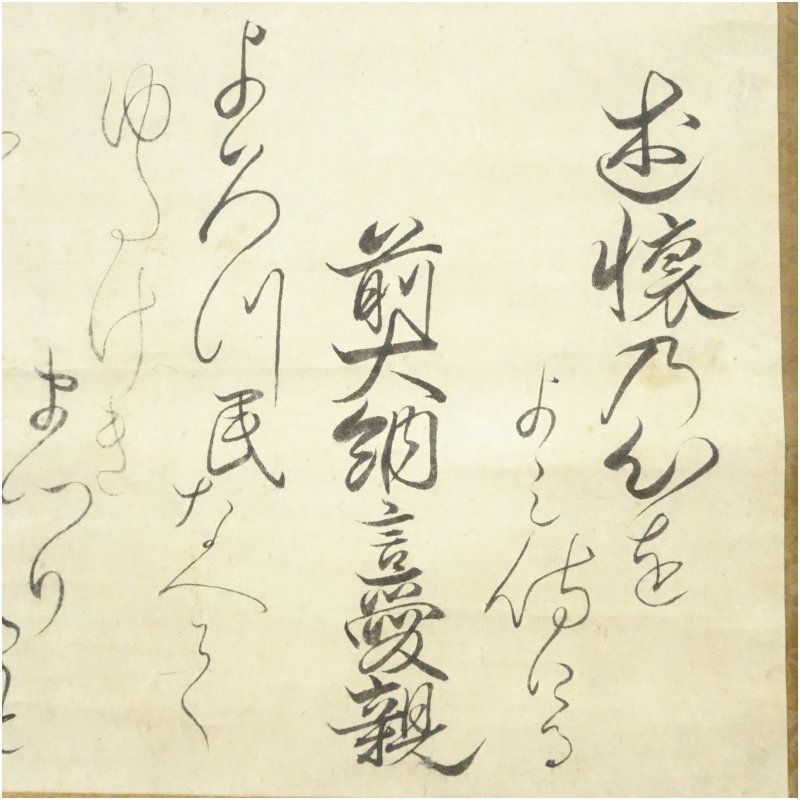 述懐乃心を
よみ侍ける
前大納言愛親
よろつ民なへて
ゆたけき
まつり